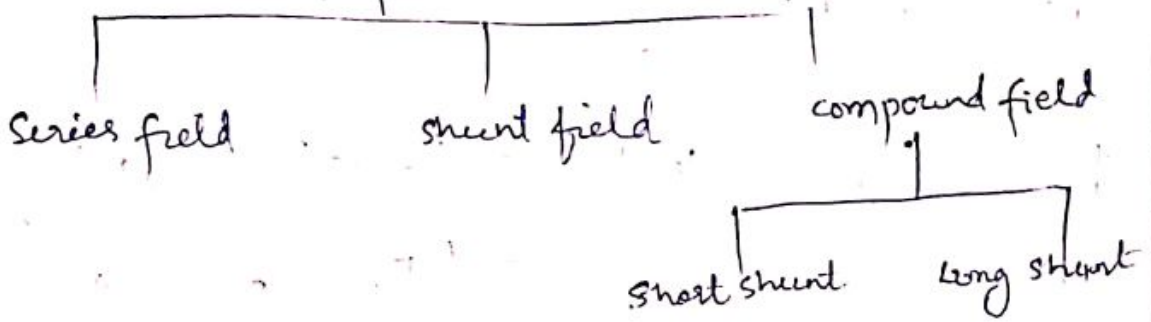 Series field shunt field. compound field
short shunt. Long shunt